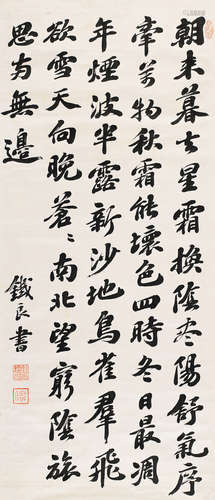 朝來暮去星霜換陰慘陽舒氣序
牽萬物秋霜能壞色四時冬日最凋
年煙波半露新沙地鳥雀羣飛
欲雪天向晚蒼〻南北望窮陰旅
思兩無邊
鐵良書